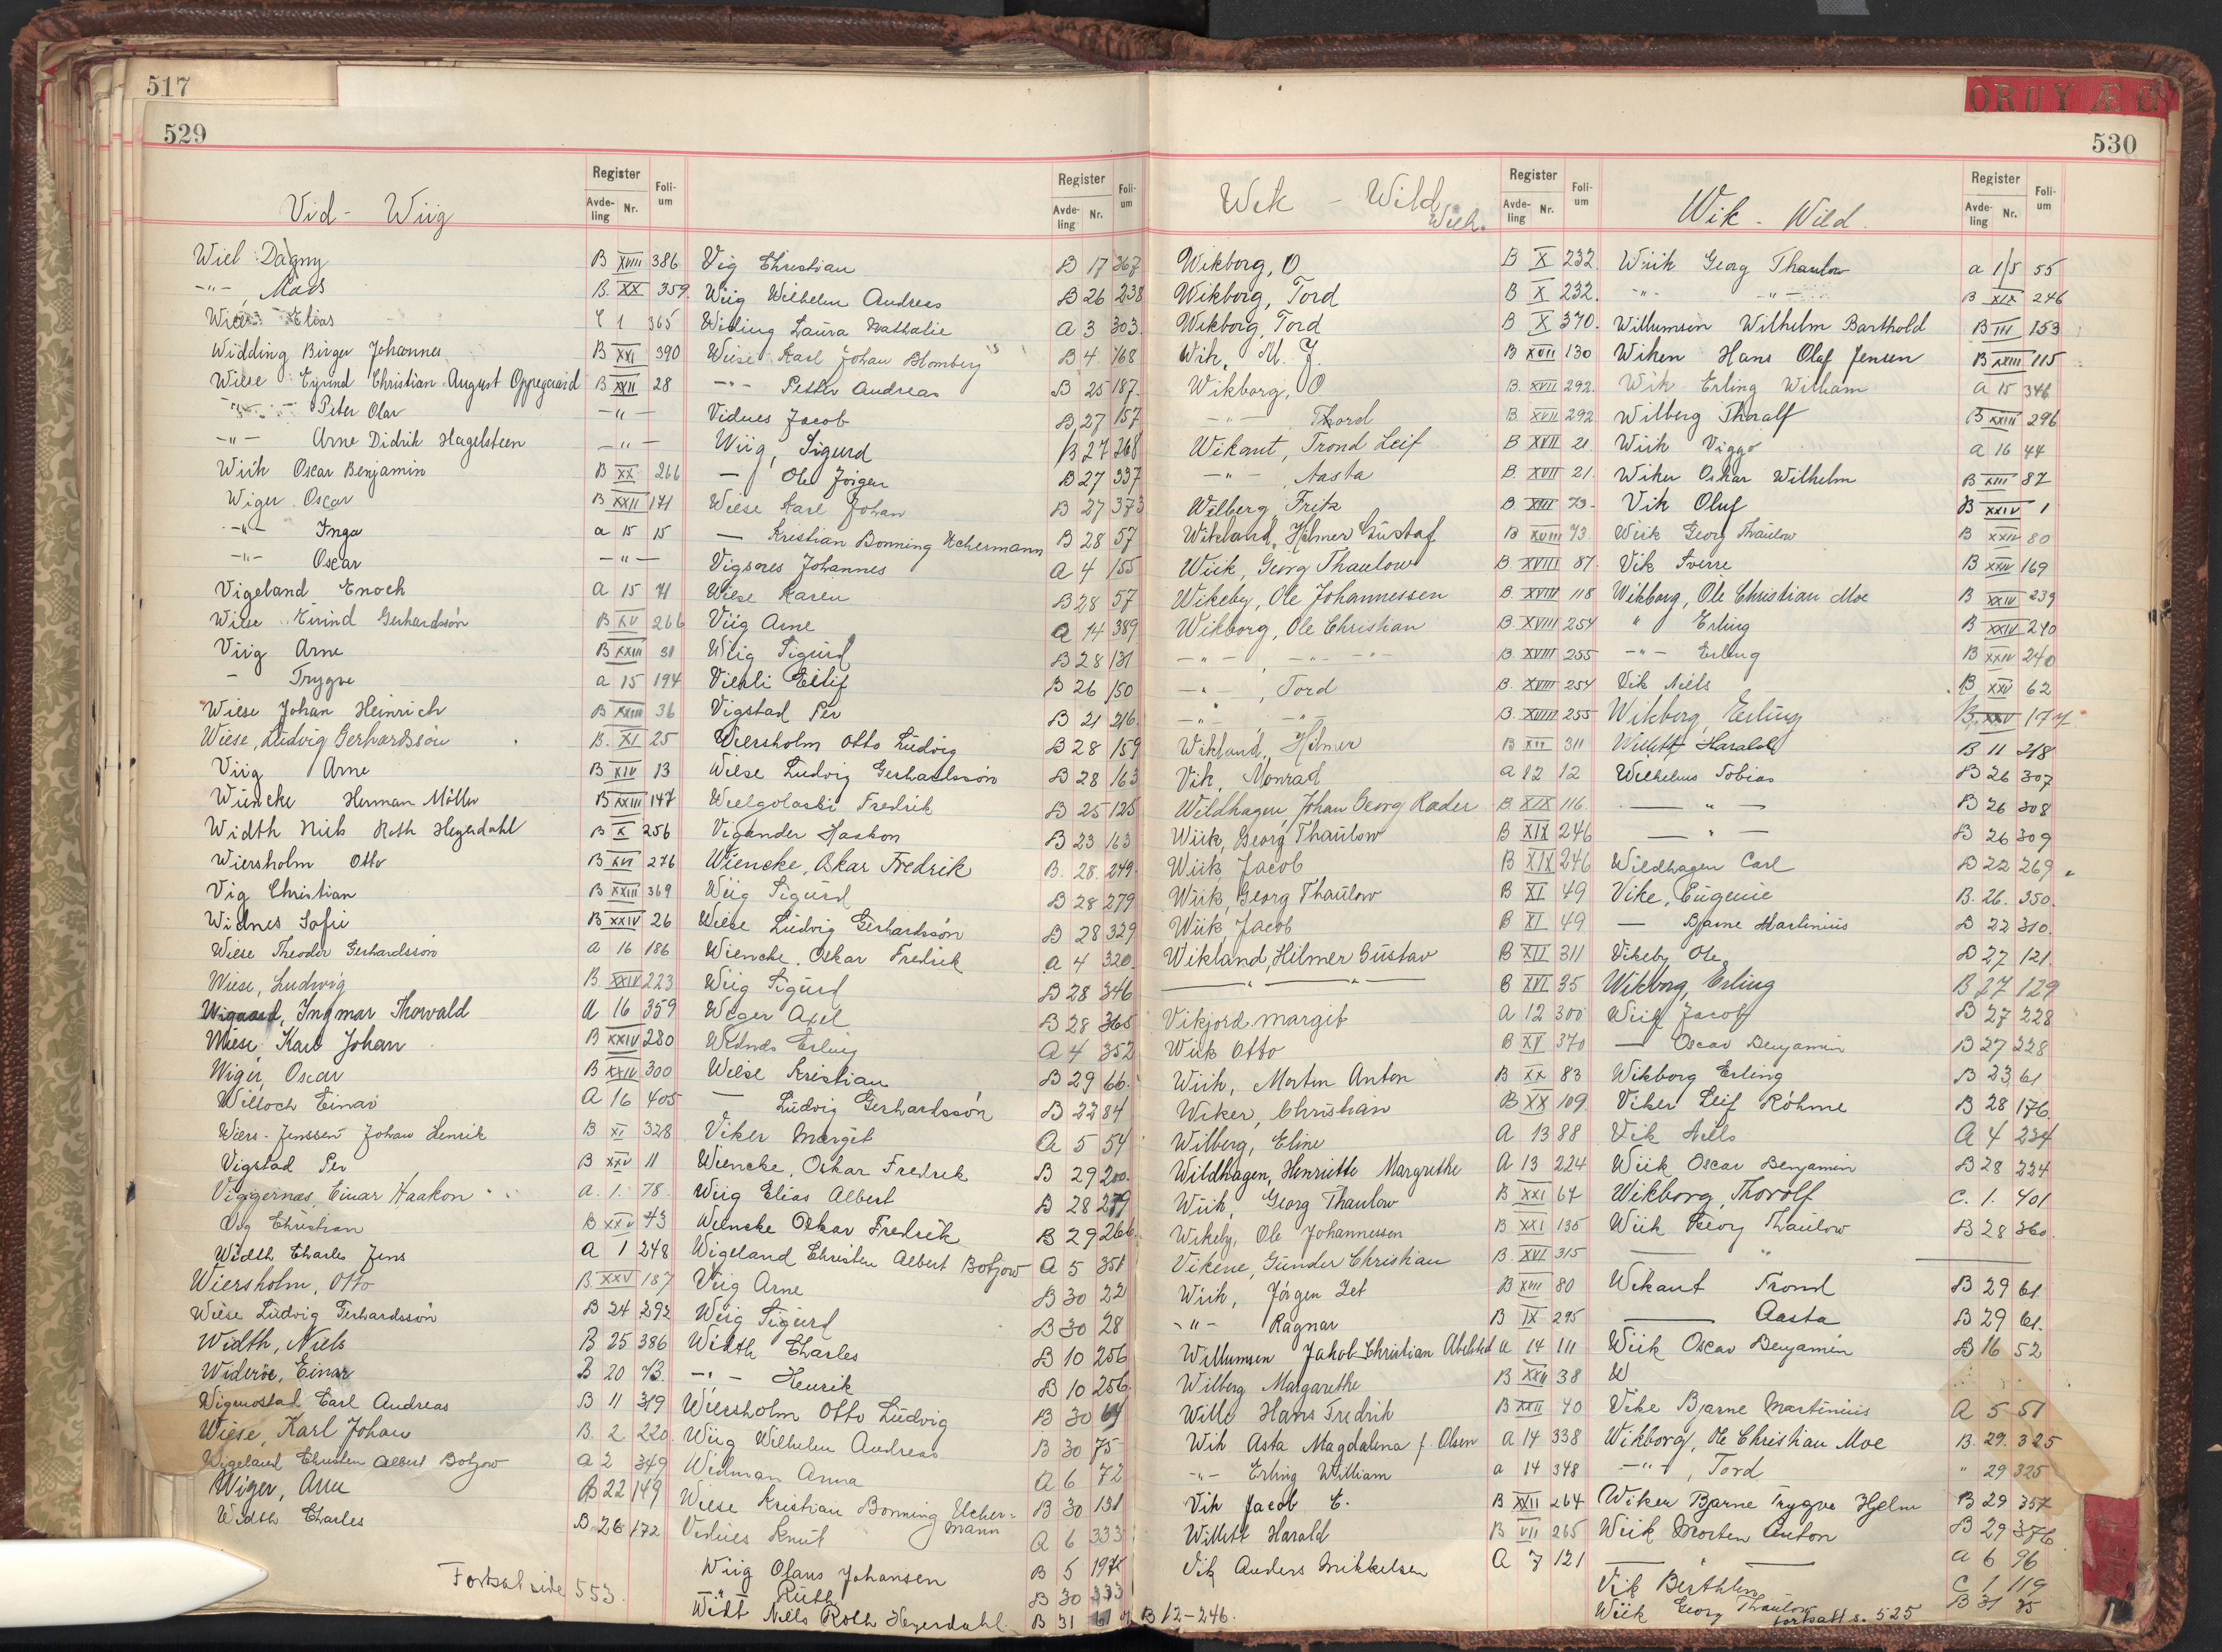 517
529
Register
Avde-ling Nr. Folium
Vid - Wiig
Wiel Dagny B XVIII 386
-"- , Mads B. XX 359.
Elias C 1 365
Widding Birger Johannes B XXI 390
Wiese Eyvind Christian August Oppegaard B XXII 28
-"- Peter Olav -"-
-"- Arne Didrik Hagelsteen -"-
Wiik Oscar Benjamin B XX 266
Wiger Oscar B XXII 171
-"- Inga a 15 15
-"- Oscar -"-
Vigeland Enoch a 15 71
Wiese Eivind Gerhardssón B XV 266
Viig Arne B XXIII 31
- Trygve a 15 194
Wiese Johan Heinrich B XXIII 36
Wiese, Ludvig Gerhardssón B. XI 25
Viig Arne B XIV 13
Wiencke Herman Möller B XXIII 147
Width Niels Roth Heyerdahl B X 256
Wiersholm Otto B XVI 276
Vig Christian B XXIII 369
Widnes Sofie B XXIV 26
Wiese Theodor Gerhardssón a 16 186
Wiese, Ludwig B XXIV 223
Wigaard, Ingmar Thorvald a 16 359
Wiese, Karl Johan B XXIV 280
Wiger, Oscar B XXIV 300
Willoch Einar A 16 405
Wiers-Jenssen Johan Henrik B XI 328
Vigstad Per B XXV 11
Viggernæs, Einar Haakon a. 1. 78
Vig Christian B XXV 43
Width Charles Jens a 1 248
Wiersholm, Otto B XXV 187
Wiese Ludvig Gerhardssón B 24 292
Width, Niels B 25 386
Widerøe, Einar B 20 73.
Vigmostad Carl Andreas B 11 319
Wiese, Karl Johan B. 2 220
Wigeland Christen Albert Botjow a 2 349
Wiger, Arne B 22 149
Width Charles B 26 172
Fortsat side 553.
Register
Avde-ling Nr. Folium
Vig Christian B 17 367
Wiig Wilhelm Andreas B 26 238
Widing Laura Nathalie A 3 303
Wiese Karl Johan Blomberg B 4 168
-"- Petter Andreas B 25 187.
Vidnes Jacob B 27 157
Wiig, Sigurd B 27 268
- Ole Jörgen B 27 337
Wiese Karl Johan B 27 373
- Kristian Bonning Uchermann B 28 57
Vigsnes Johannes A 4 155
Wiese Karen B 28 57
Viig Arne a 14 389
Wiig Sigurd B 28 131
Viekli Eilif B 26 150
Vigstad Per B 21 216.
Wiersholm Otto Ludvig B 28 159
Wiese Ludvig Gerhardssón B 28 163
Wielgolaski Fredrik B 25 125
Vigander Haakon B 23 163
Wiencke, Oskar Fredrik B. 28. 249.
Wiig Sigurd B 28 279
Wiese Ludvig Gerhardssón B 28 329
Wiencke. Oskar Fredrik a 4 320.
Wiig Sigurd B 28 346
Wiger Axel B 28 365
Widnes Erling A 4 352
Wiese Kristian B 29 66.
- Ludvig Gerhardssón B 22 84
Viker Margit A 5 54
Wiencke, Oskar Fredrik B 29 200.
Wiig Elias Albert B 28 279
Wiencke Oskar Fredrik B 29 266.
Wigeland Christen Albert Botjow A 5 351
Viig Arne B 30 22
Wiig Sigurd B 30 28
Width Charles B 10 256
-"- Henrik B 10 256
Wiersholm Otto Ludvig B 30 64
Wiig Wilhelm Andreas B 30 75
Widman Anna A 6 72
Wiese Kristian Bonning Ucher=mann B 30 131
Vidnes Knut A 6 333
Wiig Olaus Johansen B 5 197
-"- Ruth B 30 333
Widt Nils Roth Heyerdahl. B 31 61 og B 12-246.
ORUY Æ Ø
530
Register
Avde-ling Nr. Folium
Wik - Wild
Wilh.
Wikborg, O B X 232.
Wikborg, Tord B X 232.
Wikborg, Tord B X 370.
Wik, M. J. B XVII 130
Wikborg, O B. XVII 292.
-"- Thord B. XVII 292
Wikant, Trond Leif B XVII 21
-"- , Aasta B. XVII 21.
Wilberg, Fritz B. XVII 73.
Wikland, Hilmer Gustaf B XVIII 73
Wiik, Georg Thaulow B XVIII 87
Wikeby, Ole Johannessen B. XVIII 118
Wikborg, Ole Christian B. XVIII 254
-"- , -"- -"- B. XVIII 255
-"- , Tord B. XVIII 254
-"- -"- B. XVIII 255
Wikland, Hilmer B XII 311
Vik, Monrad a 12 12
Wildhagen, Johan Georg Ræder B. XIX 116
Wiik, Georg Thaulow B XIX 246
Wiik, Jacob B XIX 246
Wiik, Georg Thaulow B XI 49
Wiik, Jacob B XI 49
Wikland, Hilmer Gustav B XII 311
-"- -"- B XVI 35
Vikjord margit A 12 300
Wiik Otto B XV 370
Wiik, Morten Anton B XX 83
Wiker, Christian B XX 109.
Wilberg, Eline A 13 88
Wildhagen, Henriette Margrethe A 13 224
Wiik, Georg Thaulow B XXI 67
Wikeby, Ole Johannessen B. XXI 135
Vikene, Gunder Christian B. XVI 315
Wiik, Jörgen Zet B XVIII 80
-"- Ragnar B IX 295
Willumsen Jakob Christian Abelsted a 14 111
Wilberg Margarethe B XXII 38
Wille Hans Fredrik B XXII 40
Wik Asta Magdalena f. Olsen a 14 338
-"- Erling William a 14 348
Vik Jacob E. B XXII 264
Willett Harald B VII 265
Vik Anders Mikkelsen A 7 121
Register
Avde-ling Nr. Folium
Wik - Wild.
Wiik Georg Thaulow a 15 55
-"- -"- B XIX 246
Willumsen Wilhelm Barthold B III 153
Wiken Hans Olaf Jensen B XXIII 115
Wik Erling William a 15 346
Wilberg Thoralf B XXIII 296
Wiik Viggo a 16 44
Wiker Oskar Wilhelm B XIII 87
Vik Oluf B XXIV 1
Wiik Georg Thaulow B XXIV 80
Vik Sverre B XXIV 169
Wikborg, Ole Christian Moe B XXIV 239
" Erling B XXIV 240
-"- Erling B XXIV 240
Vik Niels B XXV 62
Wikborg, Erling B. XXV 174
Willett Harald B 11 218
Wilhelms Tobias B 26 307
-"- B 26 308
-"- B 26 309
Wildhagen Carl B 22 269
Vike, Eugenie B. 26. 350.
- Bjarne Martinius B 22 310.
Vikeby Ole B 27 121.
Wikborg, Erling B 27 129
Wiik Jacob B 27 228
- Oscar Benjamin B 27 228
Wikborg Erling B 23 61
Viker Leif Röhme B 28 176.
Vik Nils A 4 234
Wiik Oscar Benjamin B 28 224
Wikborg, Thorolf C. 1. 401
Wiik Georg Thaulow B 28 360.
-"-
Wikant Trond B 29 61
- Aasta B 29 61.
Wiik Oscar Benjamin B 16 52
W
Vike Bjarne Martinius A 5 51
Wikborg, Ole Christian Moe B. 29. 325
-"- , Tord " 29 325
Wiker Bjarne Trygve Hjelm B 29 357
Wiik Morten Anton B 29 376
-"- a 6 96
Vik Berthten C 1 119
Wiik Georg Thaulow B 31 35
fortsatt s. 525